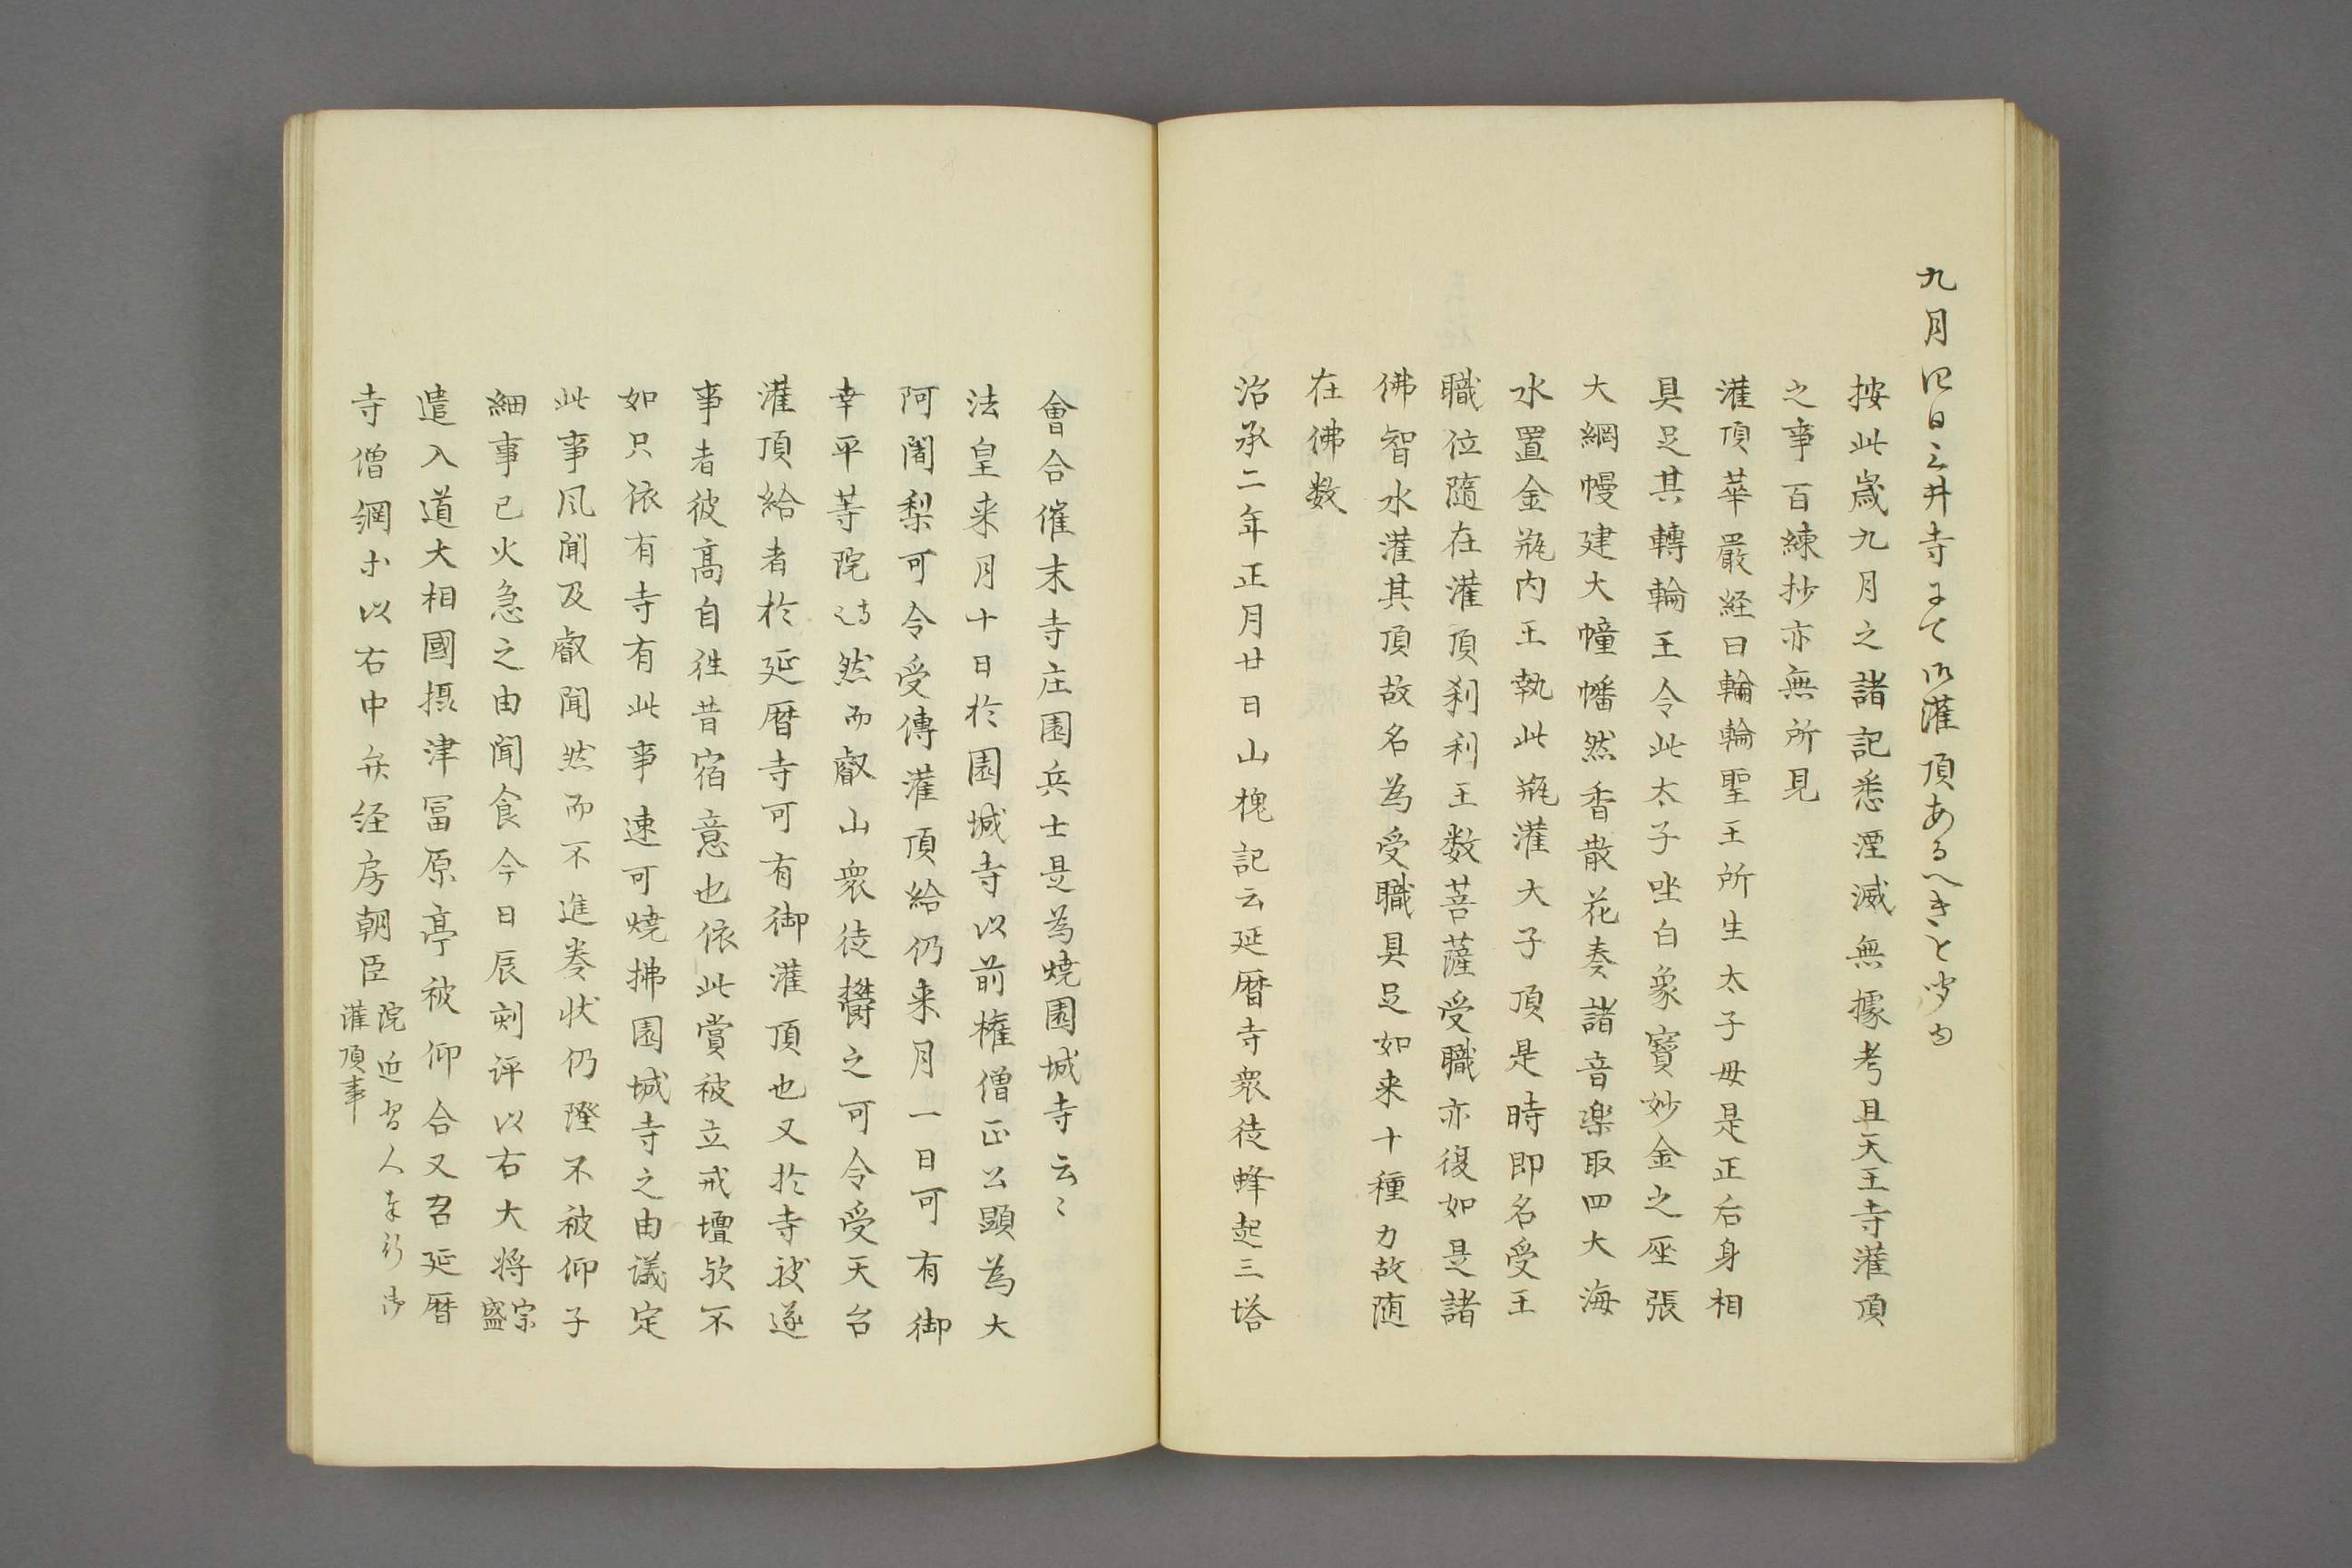 九月四日三井寺にて御灌頂あるへきと聞え
按此歳九月之諸記悉湮滅無據考且天王寺灌頂
之事百練抄亦無所見
灌頂華嚴経曰輪輪聖王所生太子毋是正后身相
具足其轉輪王令此太子坐白象寶妙金之座張
大網幔建大幢幡然香散花奏諸音樂取四大海
水置金瓶内王執此瓶灌大子頂是時即名受王
職位隨在灌頂刹利王数菩薩受職亦復如是諸
佛智水灌其頂故名為受職具足如来十種力故随
在佛数
治承二年正月廿日山槐記云延暦寺衆徒蜂起三塔
會合催末寺庄園兵士是為焼園城寺云〻
法皇来月十日於園城寺以前権僧正公顕為大
阿闍梨可令受傳灌頂給仍来月一日可有御
幸平等院然而叡山衆徒欝之可令受天台
灌頂給者於延暦寺可有御灌頂也又於寺被遂
事者彼高自往昔宿意也依此賞被立戒壇歟不
如只依有寺有此事速可焼拂園城寺之由議定
此事風聞及叡聞然而不進奏状仍隆不被仰子
細事已火急之由聞食今日辰剋評以右大将宗盛
遣入道大相國摂津冨原亭被仰合又召延暦
寺僧綱等以右中弁経房朝臣院近習人奉行御灌頂事